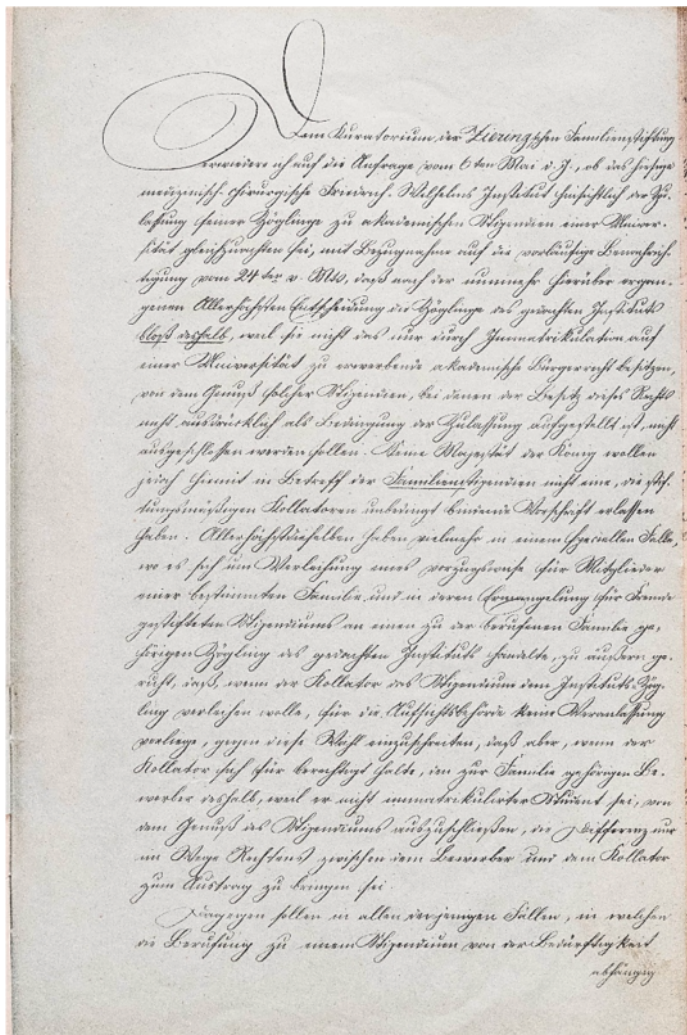 Dem Kuratorium der Zieringschen Familienstiftung
erwiedere ich auf die Anfrage vom 6ten Mai d. J., ob das hiesige
medizinisch-chirurgische Friedrich-Wilhelms Institut hinsichtlich der Zu-
lassung seiner Zöglinge zu akademischen Stipendien einer Univer-
sität gleichzuachten sei, mit Bezugnahme auf die vorläufige Benachrich-
tigung vom 24ten v. Mts, daß nach der nunmehr hierüber ergan-
genen Allerhöchsten Entscheidung die Zöglinge des gedachten Instituts
bloß deshalb, weil sie nicht das nur durch Immatrikulation auf
einer Universität zu erwerbende akademische Bürgerrecht besitzen,
von dem Genuß solcher Stipendien, bei denen der Besitz dieses Rechts
nicht ausdrücklich als Bedingung der Zulassung aufgestellt ist, nicht
ausgeschlossen werden sollen. Seine Majestät der König wollen
jedoch hiermit in Betreff der Familienstipendien nicht eine, die stif-
tungsmäßigen Kollatoren unbedingt bindende Vorschrift erlassen
haben. Allerhöchstdieselben haben vielmehr in einem speciellen Falle,
wo es sich um Verleihung eines vorzugsweise für Mitglieder
einer bestimmten Familie und in deren Ermangelung für Fremde
gestifteten Stipendiums an einen zu der berufenen Familie ge-
hörigen Zögling des gedachten Instituts handelte, zu äußern ge-
ruht, daß, wenn der Kollator das Stipendium dem Instituts-Zög-
ling verleihen wolle, für die Aufsichtsbehörde keine Veranlassung
vorliege, gegen diese Wahl einzuschreiten, daß aber, wenn der
Kollator sich für berechtigt halte, den zur Familie gehörigen Be-
werber deshalb, weil er nicht immatrikulirter Student sei, von
dem Genuß des Stipendiums auszuschließen, die Differenz nur
im Wege Rechtens zwischen dem Bewerber und dem Kollator
zum Austrag zu bringen sei.
Dagegen sollen in allen denjenigen Fällen, in welchen
die Berufung zu einem Stipendium von der Bedürftigkeit
abhängig